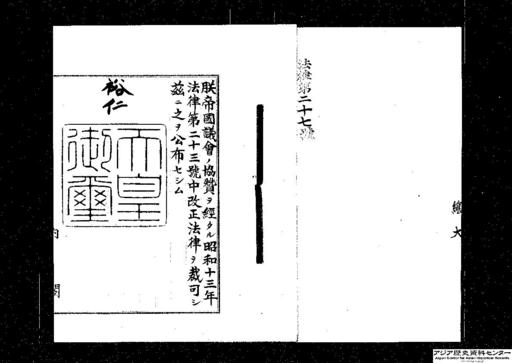 法律第二十七號
總
大
朕帝國議會ノ協贊ヲ經タル昭和十三年
法律第二十三號中改正法律ヲ裁可シ
茲ニ之ヲ公布セシム
裕仁
天皇
御璽
内
閣
アジア歴史資料センター
Japan Center for Asian Historical Records